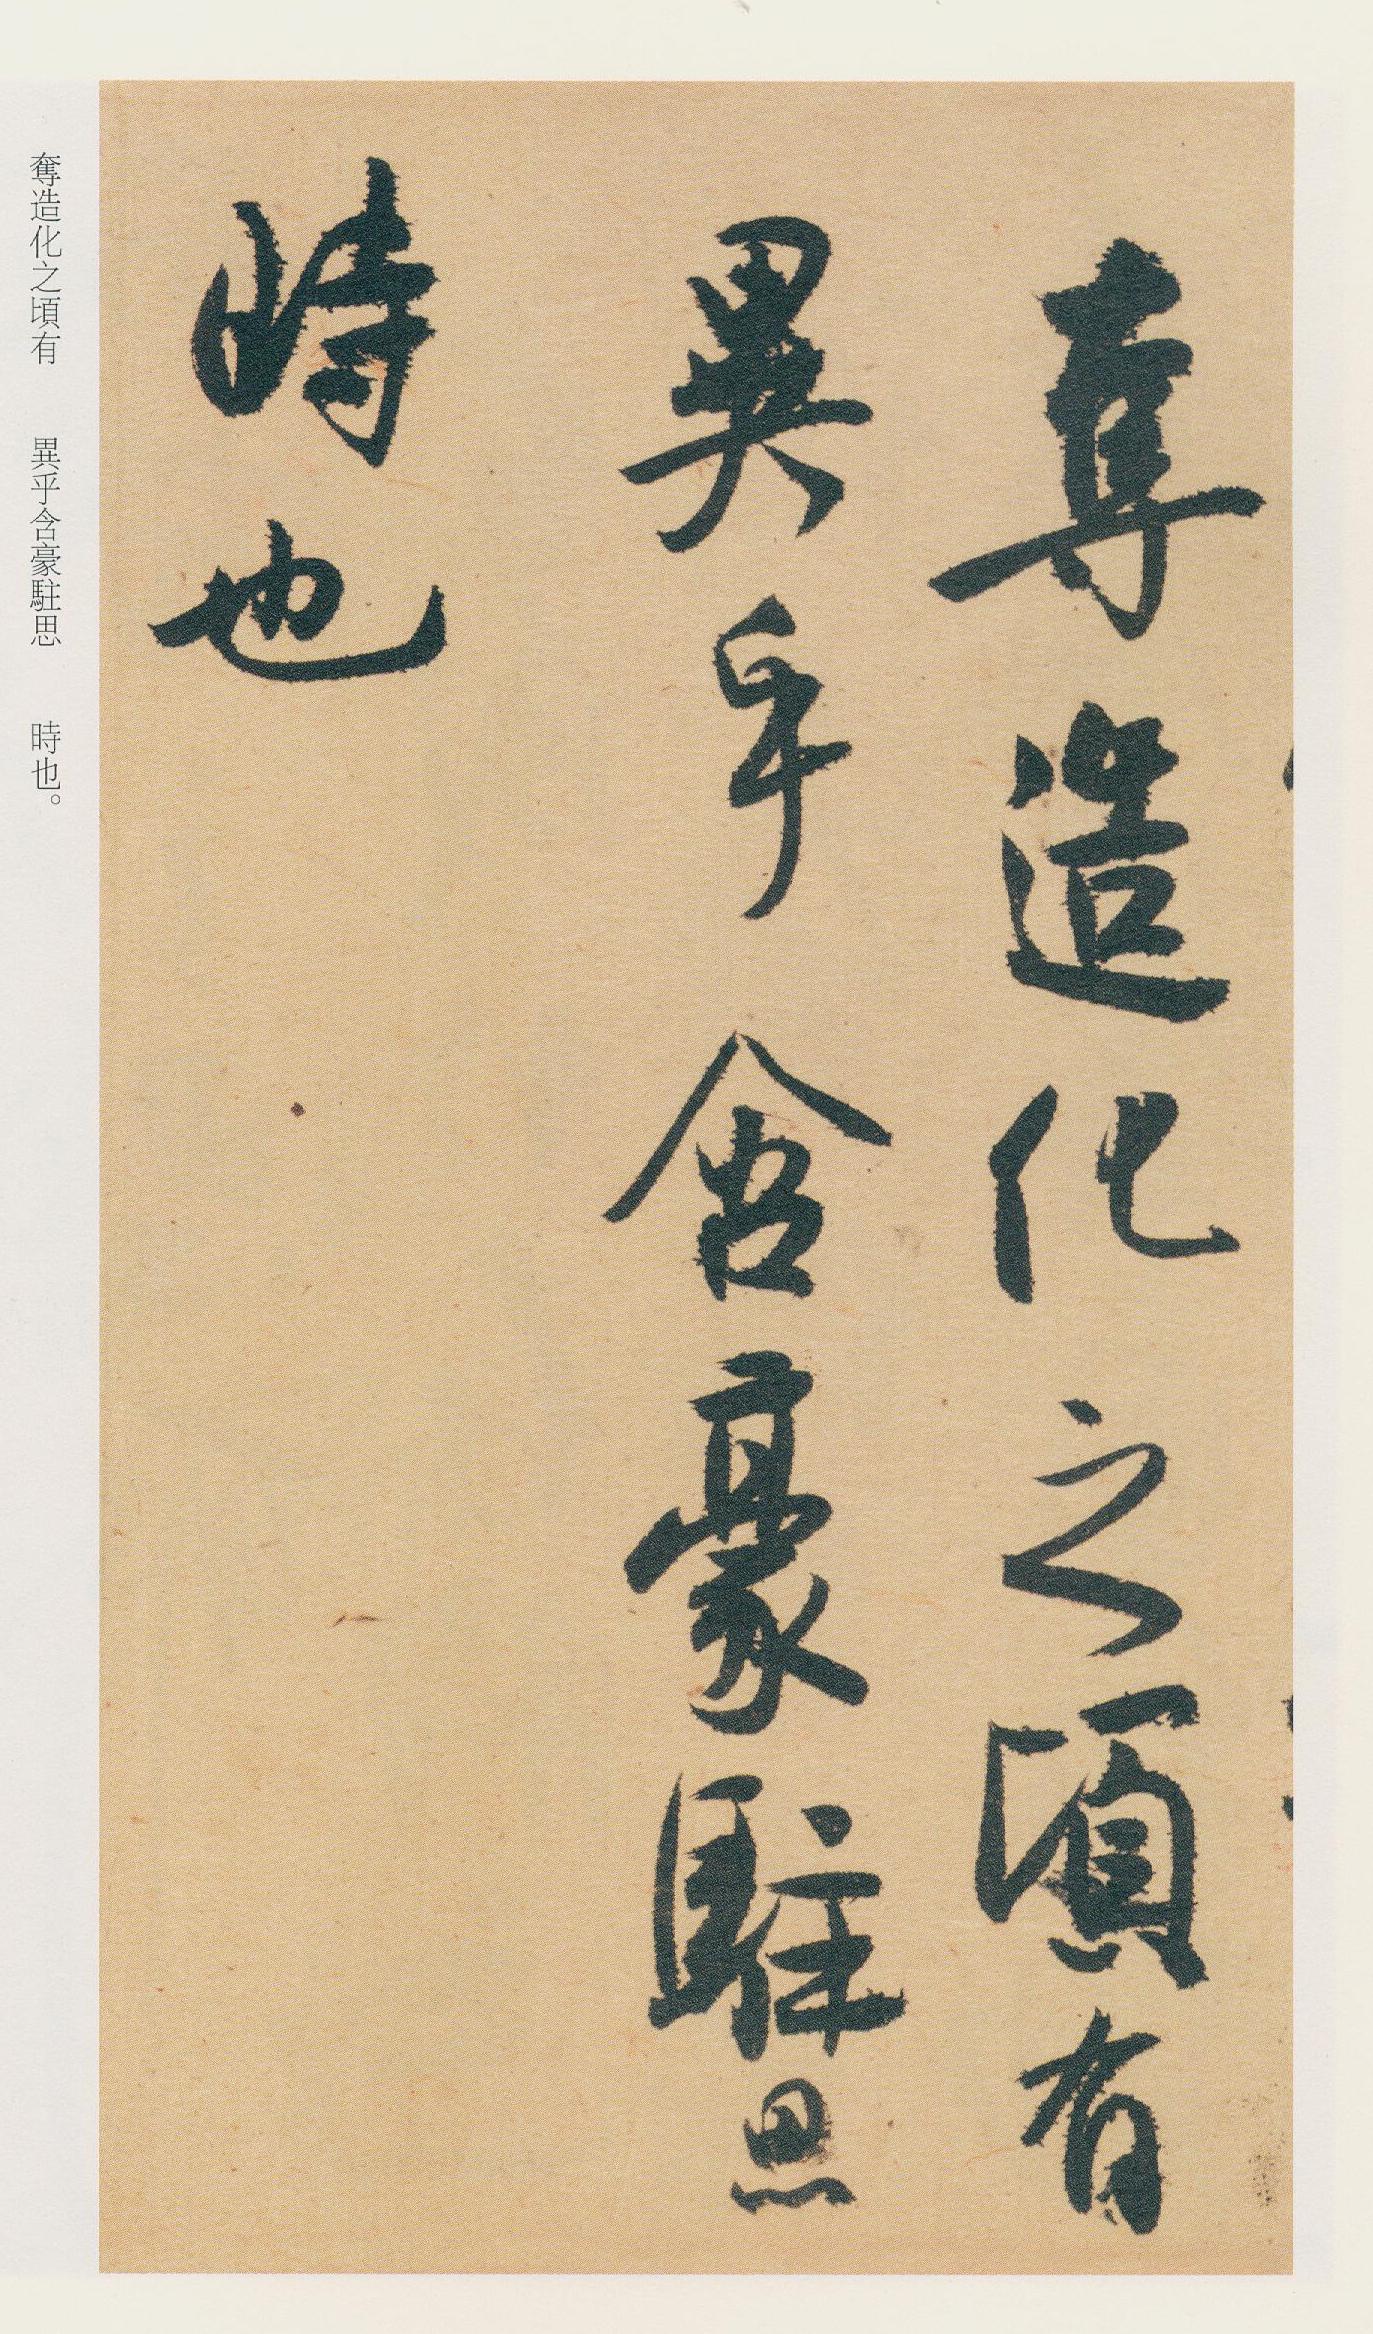 奪造化之頃有
異乎含豪駐思
時也
奪造化之頃有　異乎含豪駐思　時也。